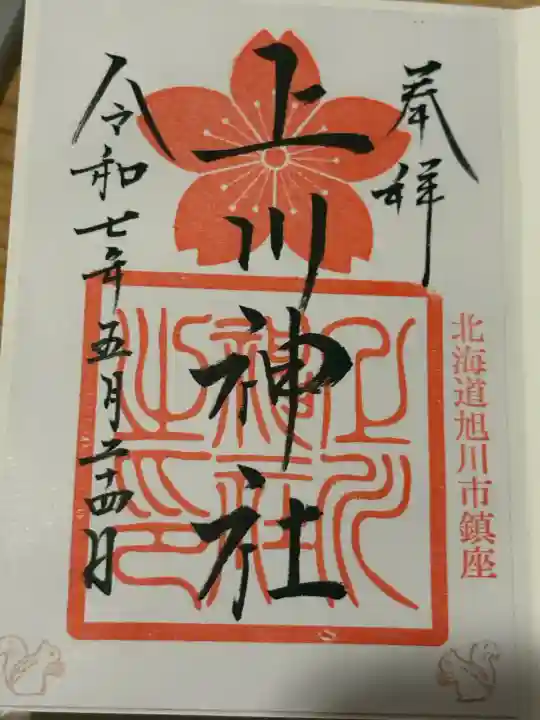 奉拝
北海道旭川市鎮座
上川神社
上川神社之印
令和七年五月二十四日